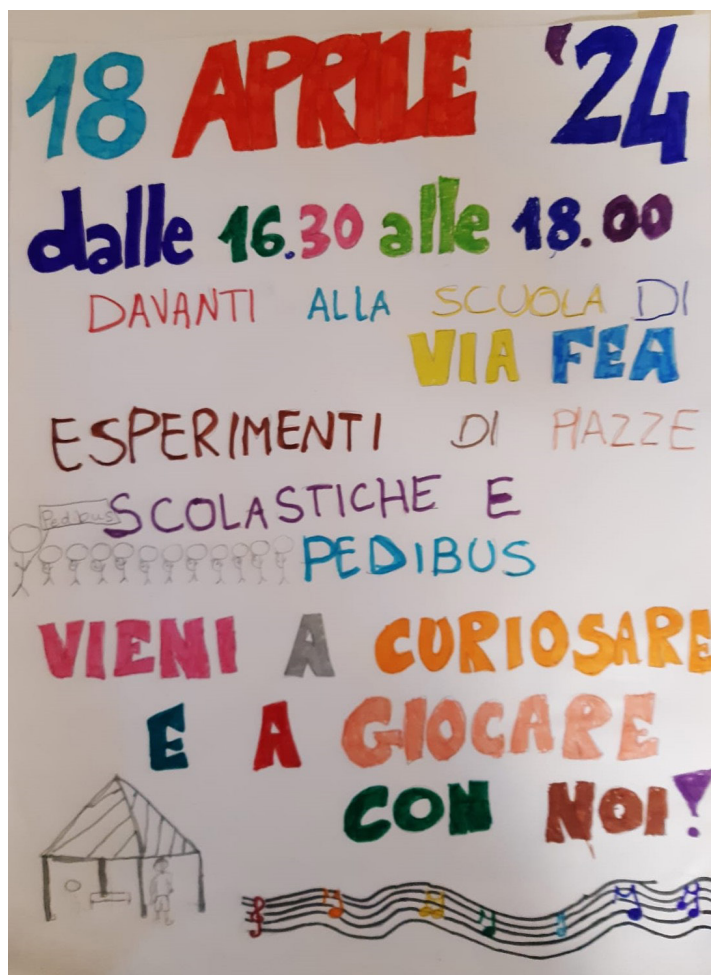 18 APRILE '24
dalle 16.30 alle 18.00
DAVANTI ALLA SCUOLA DI
VIA FEA
ESPERIMENTI DI PIAZZE
SCOLASTICHE E
Pedibus
PEDIBUS
VIENI A CURIOSARE
E A GIOCARE
CON NOI!